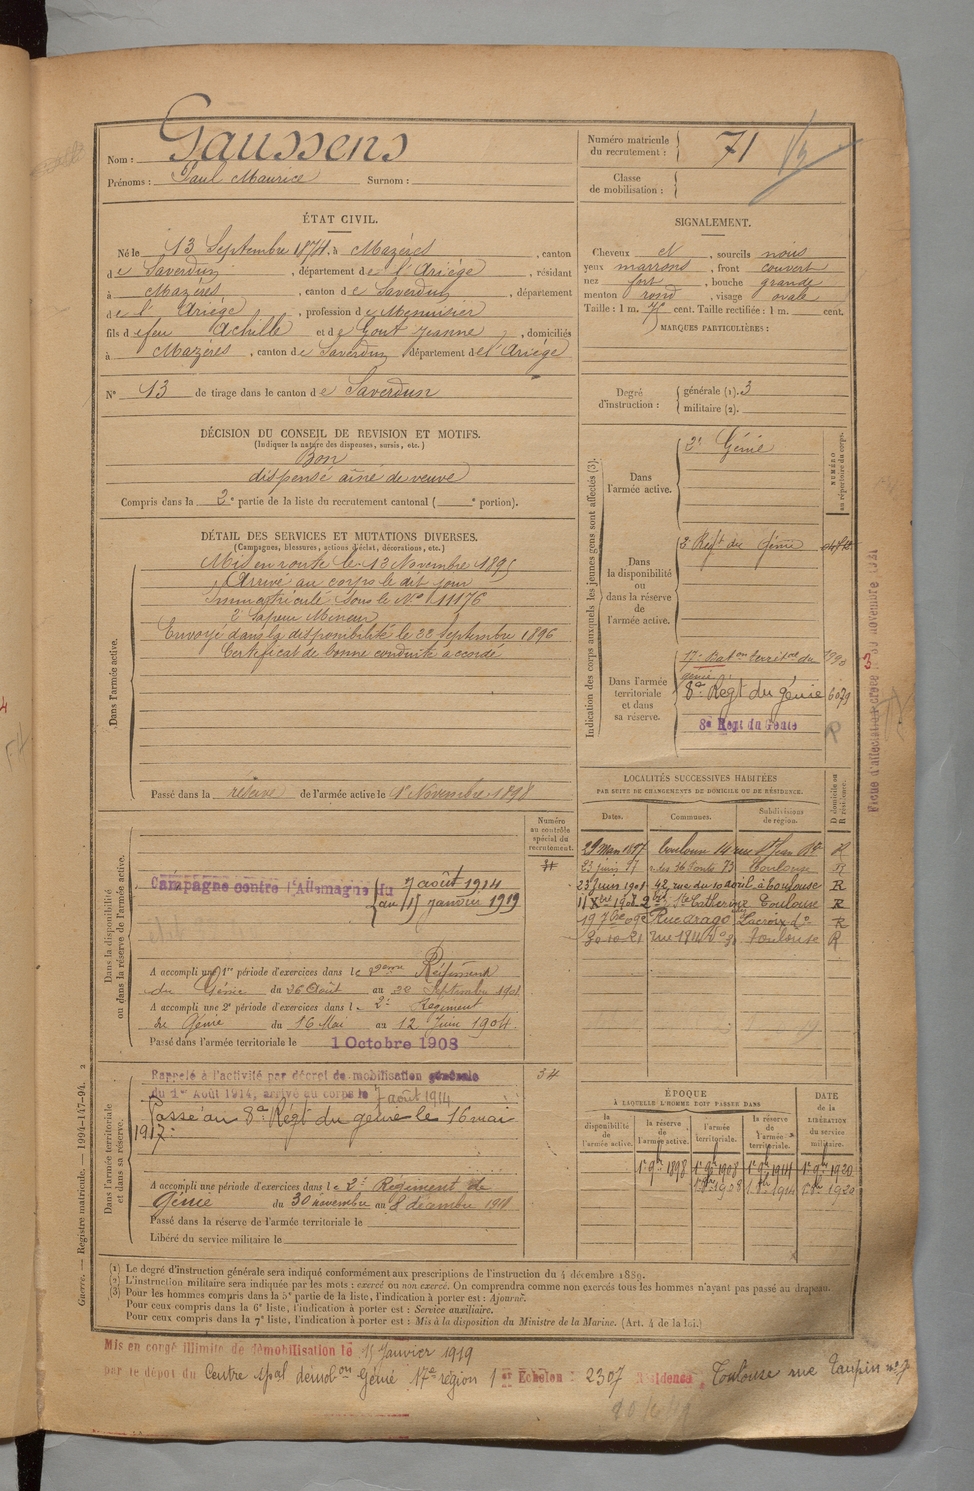 Nom : Gaussens
Prénoms : Paul Maurice Surnom :
Numéro matricule du recrutement : 71
Classe de mobilisation :
ÉTAT CIVIL.
Né le 13 Septembre 1874, à Mazères, canton
de Saverdun, département de l'Ariège, résidant
à Mazères, canton de Saverdun, département
de l'Ariège, profession de Menuisier
fils de feu Achille et de Gout Jeanne, domiciliés
à Mazères, canton de Saverdun, département de l'Ariège
N° 13 de tirage dans le canton de Saverdun
DÉCISION DU CONSEIL DE REVISION ET MOTIFS.
(Indiquer la nature des dispenses, sursis, etc.)
Bon
dispensé aîné de veuve
Compris dans la 2e partie de la liste du recrutement cantonal ( e portion).
DÉTAIL DES SERVICES ET MUTATIONS DIVERSES.
(Campagnes, blessures, actions d'éclat, décorations, etc.)
Dans l'armée active.
Mis en route le 13 Novembre 1895
Arrivé au corps le dit jour
Immatriculé sous le N° 11176
2e Sapeur Mineur
Envoyé dans la disponibilité le 22 Septembre 1896
Certificat de bonne conduite accordé
Passé dans la réserve de l'armée active le 1er Novembre 1898
Numéro au contrôle spécial du recrutement.
Dans la disponibilité ou dans la réserve de l'armée active.
Campagne contre l'Allemagne du 7 août 1914
au 15 janvier 1919
A accompli une 1re période d'exercices dans le 2eme Régiment
du Génie du 26 Août au 22 Septembre 1901
A accompli une 2e période d'exercices dans le 2e Régiment
du Génie du 16 Mai au 12 Juin 1904
Passé dans l'armée territoriale le 1 Octobre 1908
Dans l'armée territoriale et dans sa réserve.
Rappelé à l'activité par décret de mobilisation générale
du 1er Août 1914, arrivé au corps le 7 août 1914
Passé au 8e Régt du génie le 16 mai
1917
A accompli une période d'exercices dans le 2e Régiment de
Génie du 30 novembre au 8 décembre
Passé dans la réserve de l'armée territoriale le
Libéré du service militaire le
SIGNALEMENT.
Cheveux et, sourcils noirs
yeux marrons, front couvert
nez fort, bouche grande
menton rond, visage ovale
Taille : 1 m. cent. Taille rectifiée : 1 m. cent.
MARQUES PARTICULIÈRES :
Degré d'instruction : générale (1). 3
militaire (2).
Indication des corps auxquels les jeunes gens sont affectés (3).
NUMÉRO au répertoire du corps.
Dans l'armée active. 2e Génie
Dans la disponibilité ou dans la réserve de l'armée active. 2 Regt du Génie
Dans l'armée territoriale et dans sa réserve.
17e Baton territal du génie
8e Régt du génie
8e Régt du Génie
LOCALITÉS SUCCESSIVES HABITÉES
PAR SUITE DE CHANGEMENTS DE DOMICILE OU DE RÉSIDENCE.
Dates. Communes. Subdivisions de région. D domicile ou R résidence.
Toulouse R
23 juin 97 Toulouse
23 juin 1901 42, rue du 10 avril à Toulouse R
Ste Catherine Toulouse R
Rue arago R
30-10-21 Toulouse R
ÉPOQUE
À LAQUELLE L'HOMME DOIT PASSER DANS
DATE de la LIBÉRATION du service militaire.
la disponibilité de l'armée active. la réserve de l'armée active. l'armée territoriale. la réserve de l'armée territoriale.
1er 9bre 1898 1er 1908 1er 1914 1er 1920
1908 1914 1920
(1) Le degré d'instruction générale sera indiqué conformément aux prescriptions de l'instruction du 4 décembre 1889.
(2) L'instruction militaire sera indiquée par les mots : exercé ou non exercé. On comprendra comme non exercés tous les hommes n'ayant pas passé au drapeau.
(3) Pour les hommes compris dans la 5e partie de la liste, l'indication à porter est : Ajourné.
Pour ceux compris dans la 6e liste, l'indication à porter est : Service auxiliaire.
Pour ceux compris dans la 7e liste, l'indication à porter est : Mis à la disposition du Ministre de la Marine. (Art. 4 de la loi.)
Mis en congé illimité de démobilisation le 15 Janvier 1919
par le dépôt du Centre spal démobon Génie 17e région 1er Echelon : 2307 Résidence, Toulouse rue Taupin n° 7
Guerre. — Registre matricule. — 1994-147-94. 2